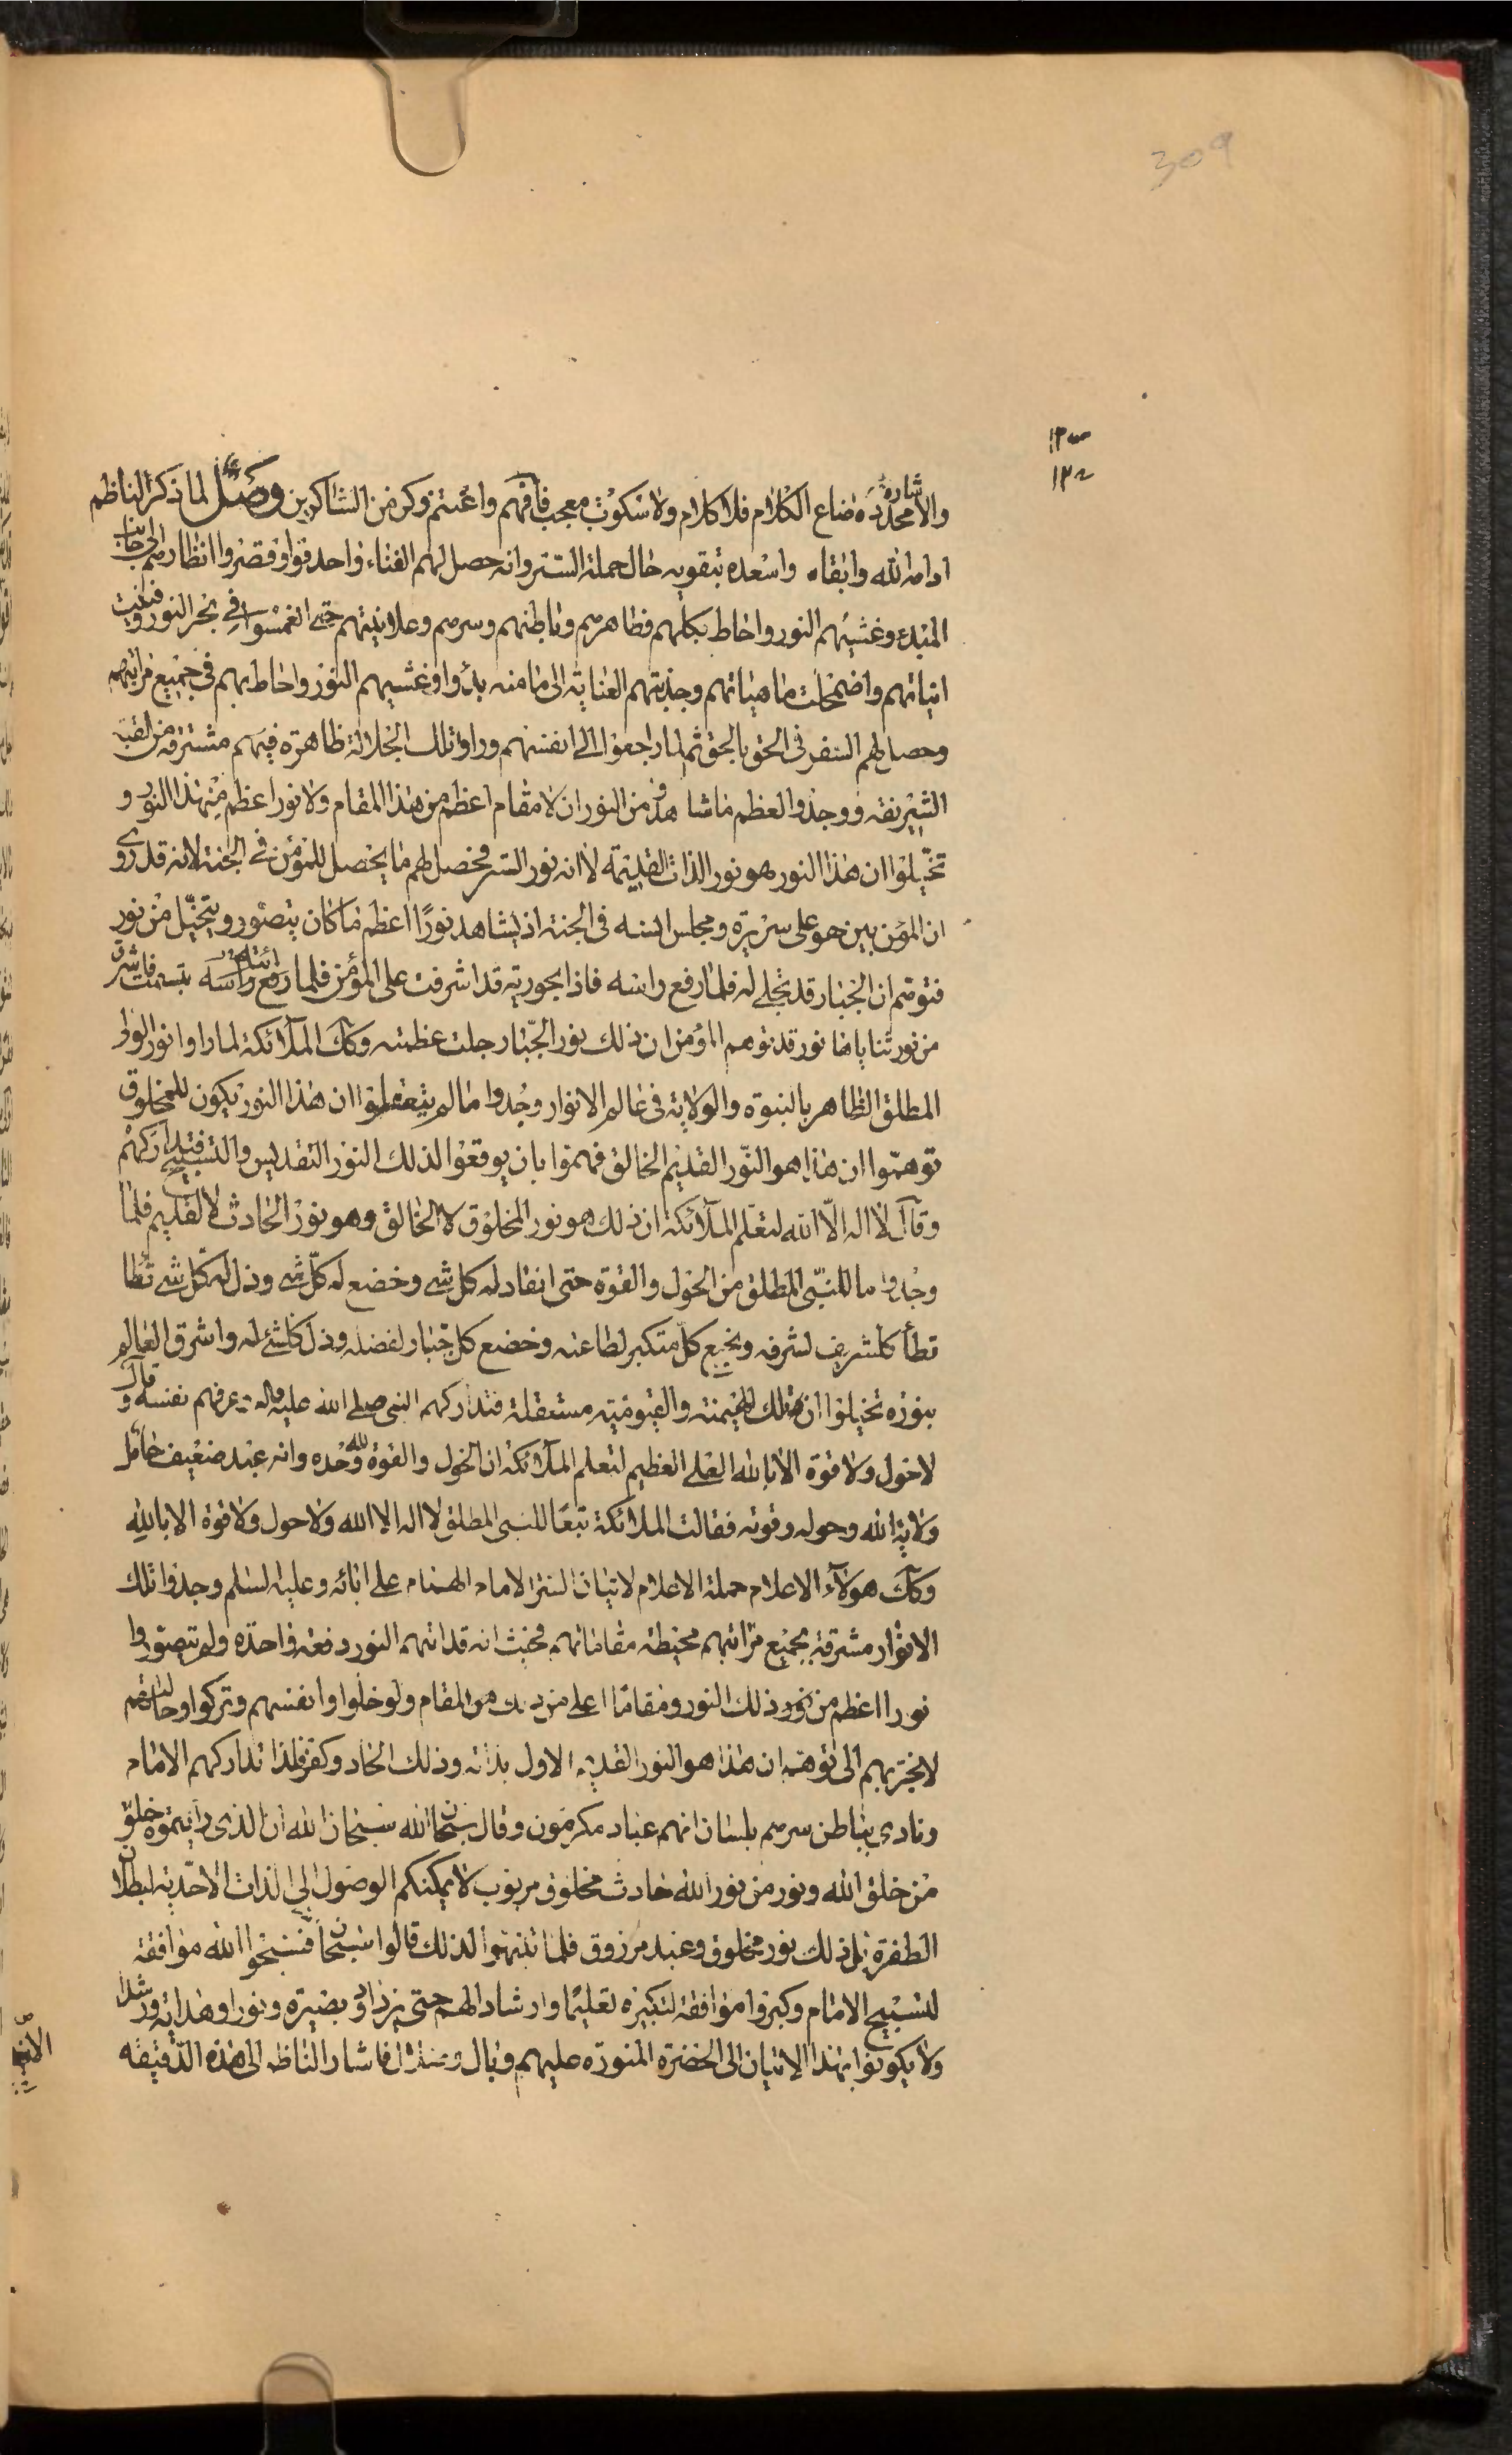 309
والاشارة محددة ضاع الكلام فلا كلام ولا سكوت معجب فافهم واغتنم وكن من الشاكرين وصل لما ذكر الناظم
ادامه الله وابقاه واسعده بتقويه حال حملة الستر وانه حصل لهم الفناء واحدقوا وقصروا انظارهم الى جانب
المبدء وغشيهم النور واحاط بكلهم فظاهرهم وباطنهم وسرهم وعلانيتهم حتى انغمسوا في بحر النور وفنيت
انياتهم واضمحلت ماهياتهم وجذبتهم العناية الى ما منه بدؤا وغشيهم النور واحاط بهم في جميع مراتبهم
وحصل لهم السفر في الحق بالحق ثم لما راجعوا الى انفسهم وراوا تلك الجلالة ظاهرة فيهم مشرقة من القبة
الشريفة ووجدوا لعظم ما شاهدوه من النور ان لا مقام اعظم من هذا المقام ولا نور اعظم من هذا النور و
تخيلوا ان هذا النور هو نور الذات القديمة لا انه نور الستر فحصل لهم ما يحصل للمؤمن في الجنة لانه قد روى
ان المؤمن بين هو على سريره ومجلس انسه في الجنة اذ يشاهد نورًا اعظم ما كان يتصور ويتخيل من نور
فتوهم ان الجبار قد تجلى له فلما رفع راسه فاذا بحورية قد اشرفت على المؤمن فلما رفع راسه رأته تبسمت فاشرق
من نور ثناياها نور قد توهم المؤمن ان ذلك نور الجبّار جلت عظمته وكك الملائكة لما راوا نور الولى
المطلق الظاهر بالنبوة والولاية في عالم الانوار وجدوا ما لم يتعقلوا ان هذا النور يكون للمخلوق
توهموا ان هذا هو النّور القديم الخالق فهموا بان يوقعوا لذلك النور التقديس والتسبيح فتداركهم
وقال لا اله الّا الله لتعلم الملائكة ان ذلك هو نور المخلوق لا الخالق وهو نور الحادث لا القديم فلما
وجدوا ما للنبّى المطلق من الحول والقوة حتى انقاد له كل شى وخضع له كلّ شى وذل له كلّ شى تطأ
تطأ كل شريف لشرفه وبخع كلّ متكبر لطاعته وخضع كل جبار لفضله وذل كلشئ له واشرق العالم
بنوره تخيلوا ان تلك الهيمنة والقيومية مستقلة فتداركهم النبى صلى الله عليه واله وعرفهم نفسه وقال
لا حول ولا قوة الا بالله العلى العظيم لتعلم الملائكة ان الحول والقوة لله وحده وانه عبد ضعيف حامل
ولاية الله وحوله وقوته فقالت الملائكة تبعًا للنبى المطلق لا اله الا الله ولا حول ولا قوة الا بالله
وكك هولآء الاعلام حملة الاعلام لاتيان الستر الامام الهمام على ابائه وعليه السلم وجدوا تلك
الانوار مشرقة بجميع مراتبهم محيطة مقاماتهم بحيث انه قد اتهم النور دفعة واحدة ولم يتصوروا
نورا اعظم من ذلك النور ومقامًا اعلى من ذلك المقام ولو خلوا وانفسهم وتركوا وحالتهم
لانجر بهم الى توهم ان هذا هو النور القديم الاول بذاته وذلك الحاد وكفر فلذا تداركهم الامام
ونادى بباطن سرهم بلسان انهم عباد مكرمون وقال سبحان الله سبحان الله ان الذى رايتموه خلق
من خلق الله ونور من نور الله حادث مخلوق مربوب لا يمكنكم الوصول الى الذات الاحدية لبطلان
الطفرة بل ذلك نور مخلوق وعبد مرزوق فلما تنبهوا لذلك قالوا سبحان فسبحوا الله موافقة
لتسبيح الامام وكبروا موافقة لتكبيره تعليمًا وارشادا لهم حتى يزدادوا بصيرة ونورا وهداية ورشدا
ولا يكونوا بهذا الاتيان الى الحضرة المنورة عليهم وبال فاشار الناظم الى هذه الدقيقة